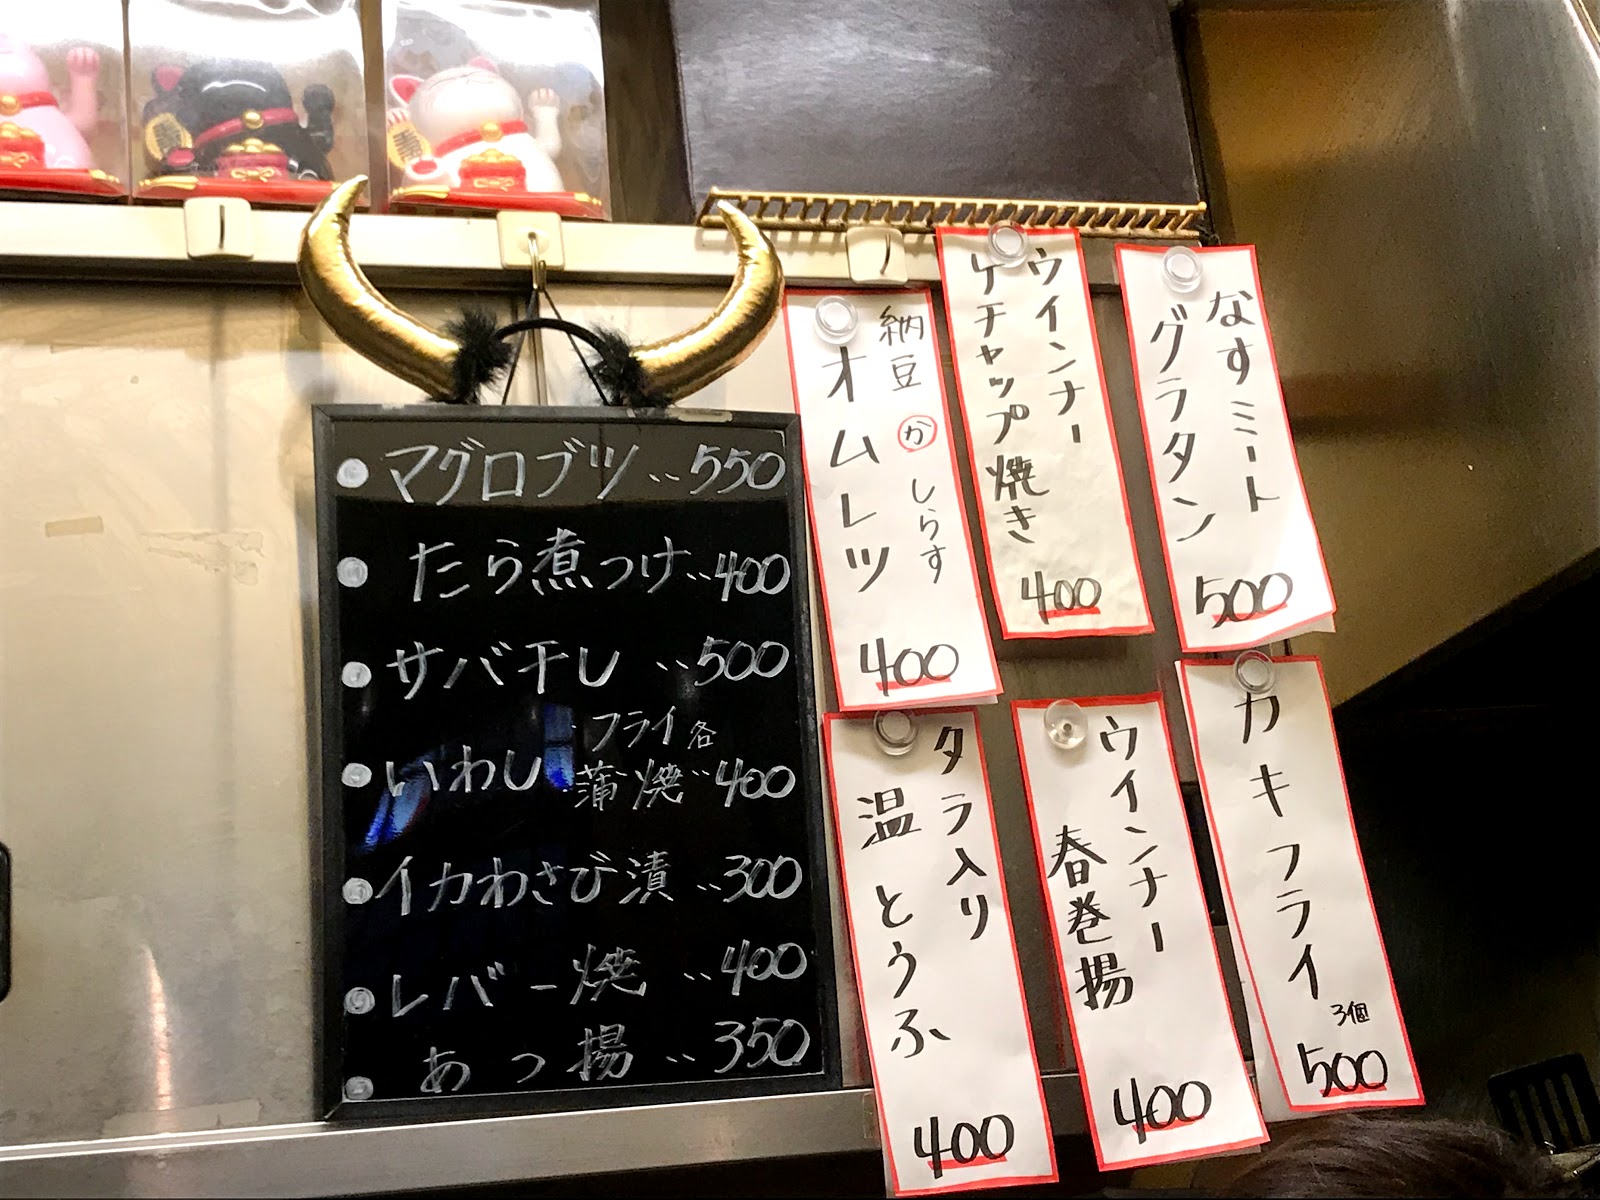 マグロブツ‥550
たら煮つけ‥400
サバ干し‥500
いわし・フライ各
・蒲焼‥400
イカわさび漬‥300
レバー焼‥400
あつ揚‥350
納豆かしらす
オムレツ
400
ウインナー
ケチャップ焼き
400
なすミート
グラタン
500
タラ入り
温とうふ
400
ウインナー
春巻揚
400
カキフライ
3個
500